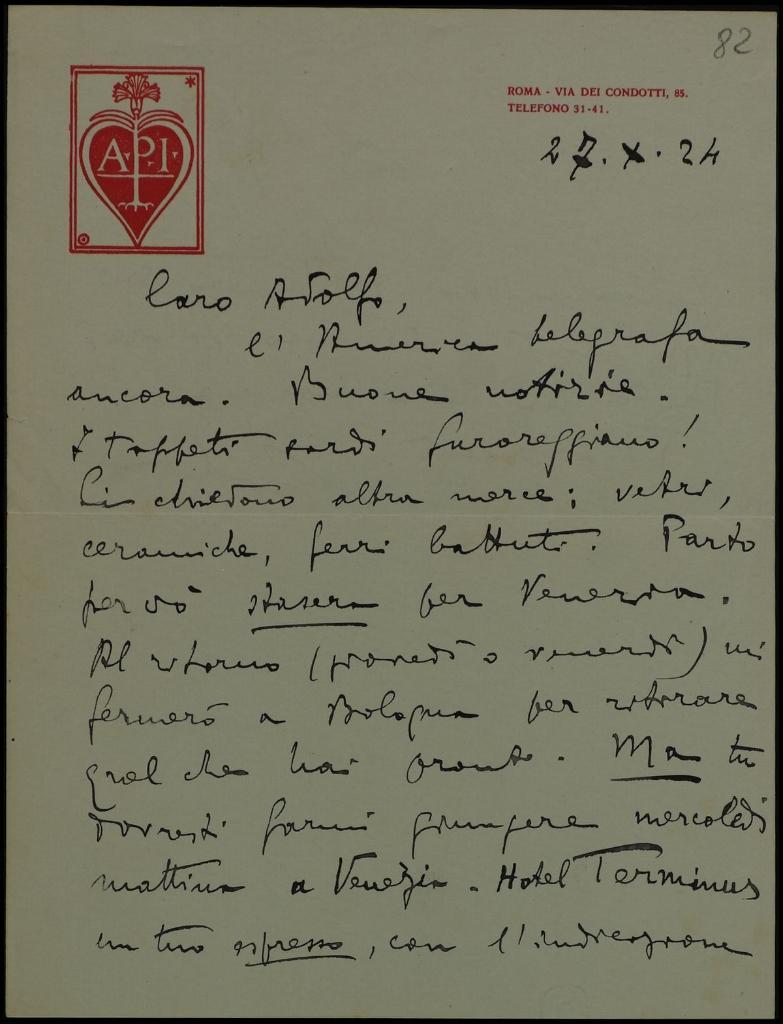 82
A·P·I·
ROMA - VIA DEI CONDOTTI, 85.
TELEFONO 31-41.
27. X. 24
Caro Adolfo,
l'America telegrafa
ancora. Buone notizie.
I tappeti sardi furoreggiano!
Ci chiedono altra merce; vetri,
ceramiche, ferri battuti. Parto
perciò stasera per Venezia.
Al ritorno (giovedì o venerdì) mi
fermerò a Bologna per ritirare
quel che hai pronto. Ma tu
dovresti farmi giungere mercoledì
mattina a Venezia. Hotel Terminus
un tuo espresso, con l'indicazione